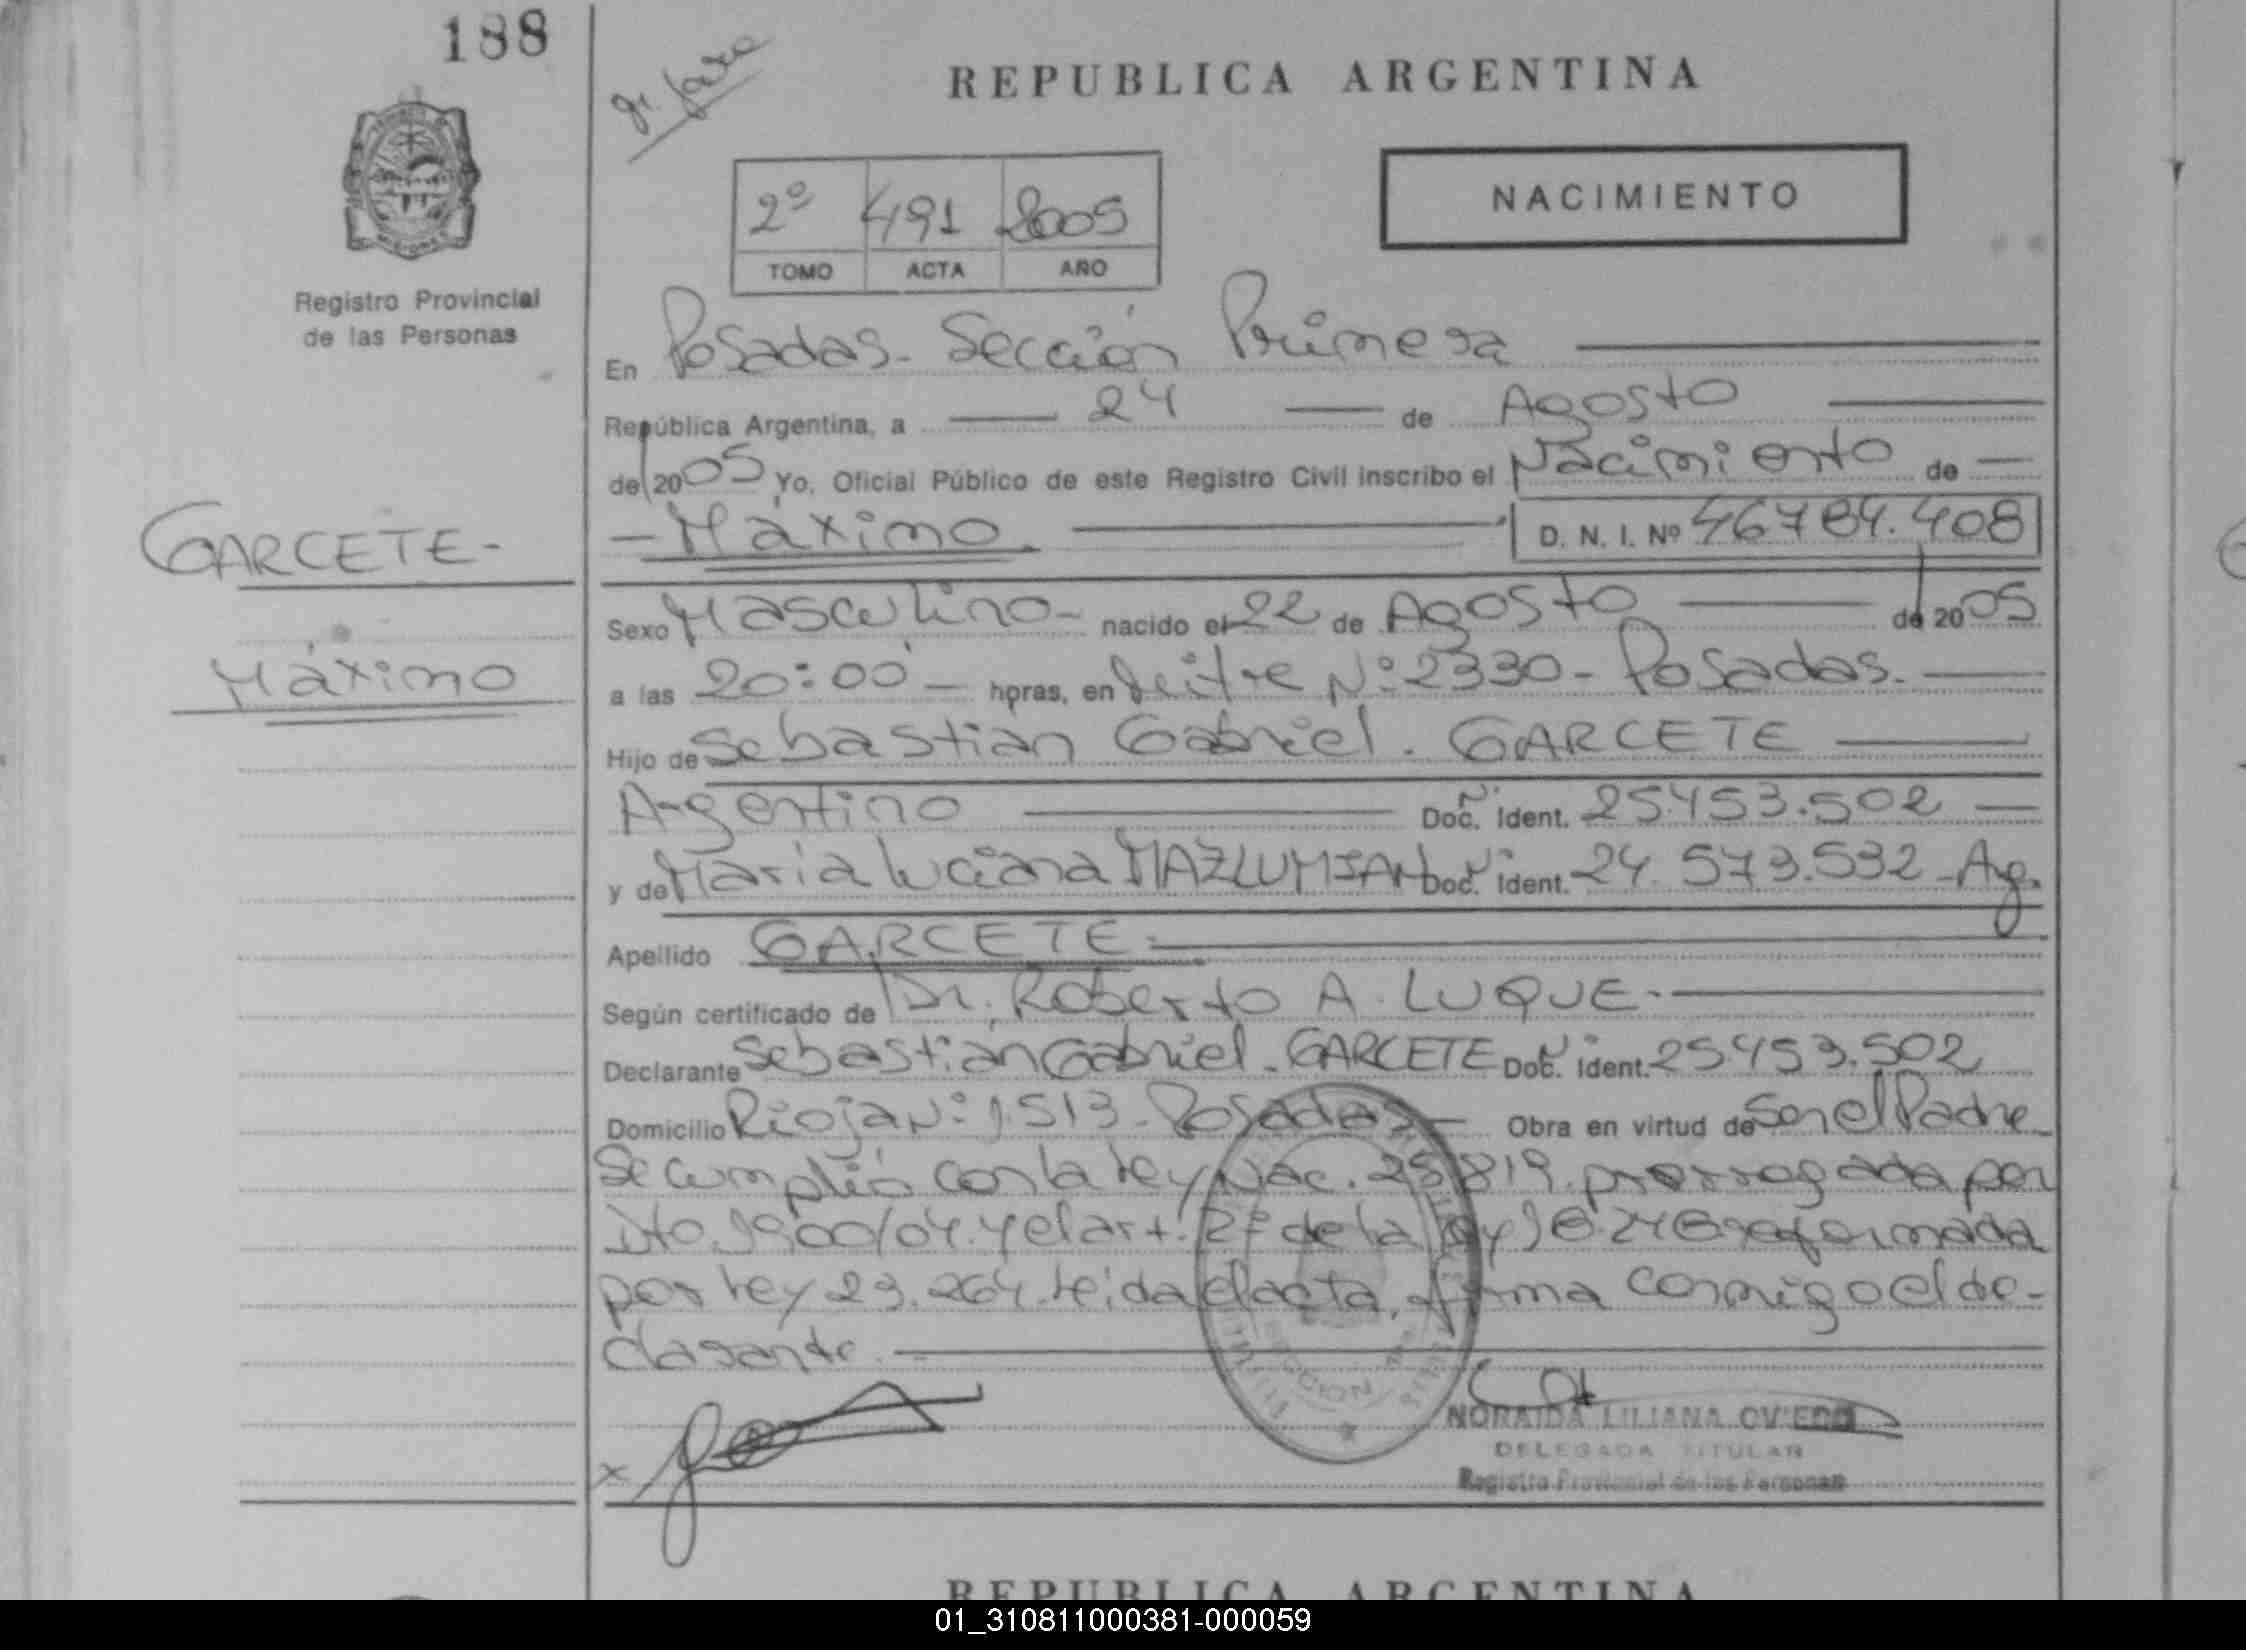 188
gr. faxo
REPUBLICA ARGENTINA
NACIMIENTO
2º 491 2005
TOMO ACTA AÑO
Registro Provincial
de las Personas
En Posadas- Sección Primera
República Argentina, a 24 de Agosto
de 2005 Yo, Oficial Público de este Registro Civil inscribo el Nacimiento de
GARCETE-
- Máximo D. N. I. Nº 46784.408
Sexo Masculino- nacido el 22 de Agosto de 2005
Máximo
a las 20:00 - horas, en Nº 2330- Posadas.
Hijo de Sebastian Gabriel. GARCETE
Argentino Doc. Ident. 25.453.502
y de Maria Luciana MAZLUMIAN Doc. Ident. 24.573.532 - Arg.
Apellido GARCETE
Según certificado de Dr. Roberto A. LUQUE-
Declarante Sebastian Gabriel - GARCETE Doc. Ident. 25.453.502
Domicilio Rioja Nº 1.513- Posadas Obra en virtud de Ser el Padre
Se cumplió con la ley Nac. 25.819. prorrogada por
Dto. 1900/04. y el art. 2º de la ley 18.248 reformada
por ley 23.264. Leida el acta, firma conmigo el de-
clarante.
SECCION
NORAIDA LILIANA OVIEDO
DELEGADA TITULAR
Registro Provincial de las Personas
x
REPUBLICA ARGENTINA
01_310811000381-000059